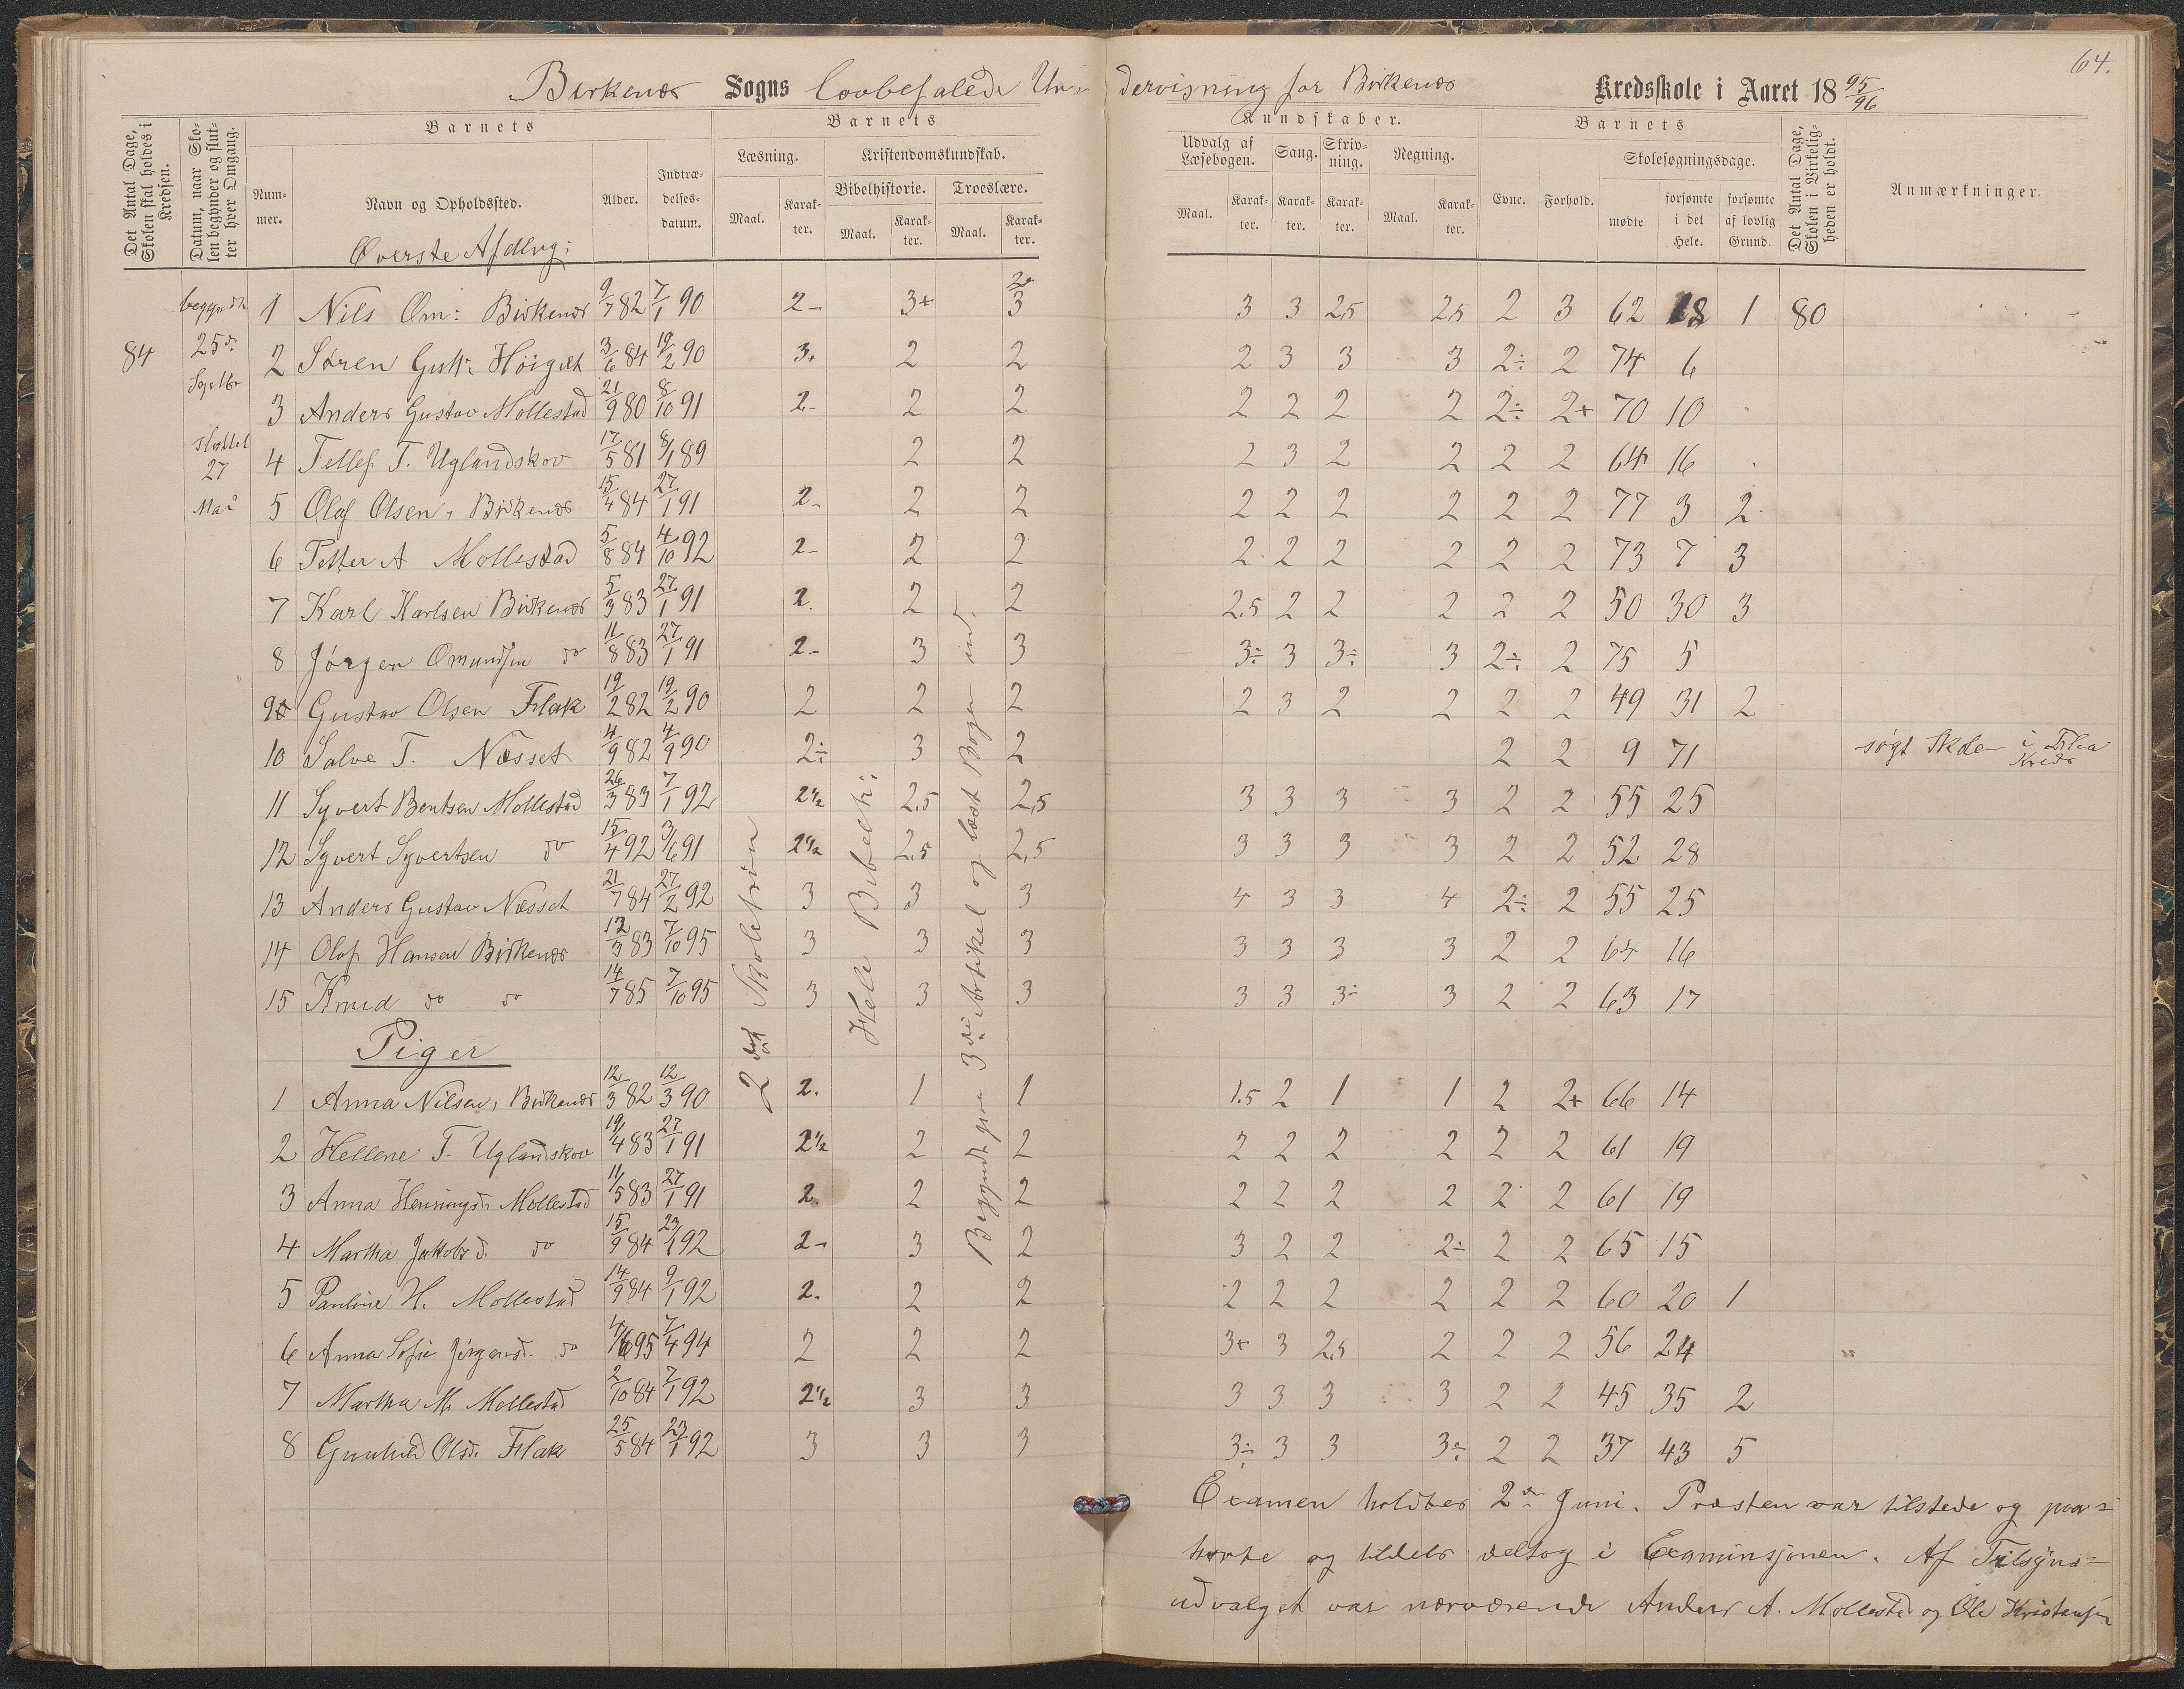 64.
Birkenæs Sogns lovbefalede Un-dervisning for Birkenæs Kredsskole i Aaret 18 95/96
Det Antal Dage, Skolen skal holdes i Kredsen.
Datum, naar Skolen begynder og slutter hver Omgang.
Barnets
Nummer.
Navn og Opholdssted.
Alder.
Indtrædelsesdatum.
Barnets Kundskaber.
Læsning.
Maal.
Karakter.
Kristendomskundskab.
Bibelhistorie.
Maal.
Karakter.
Troeslære.
Maal.
Karakter.
Udvalg af Læsebogen.
Maal.
Karakter.
Sang.
Karakter.
Skrivning.
Karakter.
Regning.
Maal.
Karakter.
Barnets
Evne.
Forhold.
Skolesøgningsdage.
mødte
forsømte i det Hele.
forsømte af lovlig Grund.
Det Antal Dage, Skolen i Virkeligheden er holdt.
Anmærkninger.
Øverste Afdlng:
84
begyndte
25de
Septbr
sluttet
27
Mai
1 Nils Om: Birkenæs 9/7 82 7/1 90 2- 3+ 3 3 3 2,5 2,5 2 3 62 18 1 80
2 Søren Gutt: 3/6 84 19/2 90 3+ 2 2 2 3 3 3 2÷ 2 74 6
3 Anders Gustav Mollestad 21/9 80 8/10 91 2- 2 2 2 2 2 2 2÷ 2+ 70 10
4 Tellef T. Uglandskov 17/5 81 8/1 89 2 2 2 3 2 2 2 2 64 16
5 Olaf Olsen, Birkenæs 15/4 84 27/1 91 2- 2 2 2 2 2 2 2 2 77 3 2
6 Petter A Mollestad 5/8 84 4/10 92 2- 2 2 2 2 2 2 2 2 73 7 3
7 Karl Karlsen Birkenæs 5/3 83 27/1 91 2. 2 2 2,5 2 2 2 2 2 50 30 3
8 Jørgen Omundsen do 11/8 83 27/1 91 2- 3 3 3÷ 3 3÷ 3 2÷ 2 75 5
9 Gustav Olsen Flak 19/2 82 19/2 90 2 2 2 2 3 2 2 2 2 49 31 2
10 Salve T. Næsset 4/9 82 4/9 90 2÷ 3 2 2 2 9 71 søgt Skolen i Flaa Kreds
11 Syvert Bentsen Mollestad 26/3 83 7/1 92 2½ 2,5 2,5 3 3 3 3 2 2 55 25
12 Syvert Syvertsen do 15/4 92 3/6 91 2½ 2,5 2,5 3 3 3 3 2 2 52 28
13 Anders Gustav Næsset 21/7 84 27/2 92 3 3 3 4 3 3 4 2÷ 2 55 25
14 Olaf Hansen Birkenæs 12/3 83 7/10 95 3 3 3 3 3 3 3 2 2 64 16
15 Knud do do 14/7 85 7/10 95 3 3 3 3 3 3÷ 3 2 2 63 17
2det Skoletrin
Hele Bibelhi:
Begyndt paa 3die Artikel og læst Bogen ud.
Piger
1 Anna Nilsen, Birkenæs 12/3 82 12/3 90 2. 1 1 1.5 2 1 1 2 2+ 66 14
2 Hellene T. Uglandskov 19/4 83 27/1 91 2½ 2 2 2 2 2 2 2 2 61 19
3 Anna Henningsd. Mollestad 11/5 83 27/1 91 2. 2 2 2 2 2 2 2 2 61 19
4 Martha Jakobsd. do 15/9 84 23/1 92 2- 3 2 3 2 2 2÷ 2 2 65 15
5 Pauline H. Mollestad 14/9 84 9/1 92 2. 2 2 2 2 2 2 2 2 60 20 1
6 Anna Sofie Jørgensd. do 4/6 95 7/4 94 2 2 2 3+ 3 2,5 2 2 2 56 24
7 Martha M. Mollestad 2/10 84 7/1 92 2½ 3 3 3 3 3 3 2 2 45 35 2
8 Gunhild Olsd. Flak 25/5 84 23/1 92 3 3 3 3÷ 3 3 3÷ 2 2 37 43 5
Examen holdtes 2den Juni. Præsten var tilstede og paa-
hørte og tildels deltog i Examinsjonen. Af Tilsyns-
udvalget var nærværende Anders A. Mollestad og Ole Kristensen